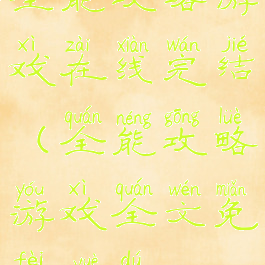 全能攻略游
xì zài xiàn wán jié
戏在线完结
quán néng gōng lüè
（全能攻略
yóu xì quán wén miǎn
游戏全文免
fèi yuè dú